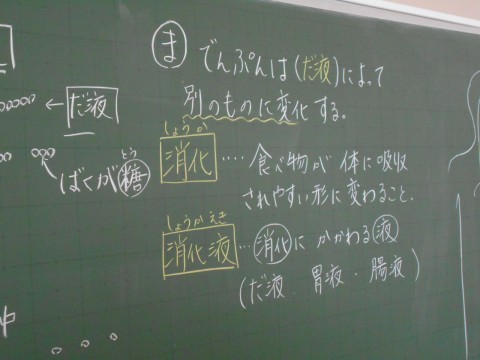 ← だ液
とう
ばくが糖
ま でんぷんは(だ液)によって
別のものに変化する。
しょうか
消化 ‥‥ 食べ物が体に吸収
されやすい形に変わること.
しょうかえき
消化液 ‥‥ 消化にかかわる液
(だ液.胃液・腸液)